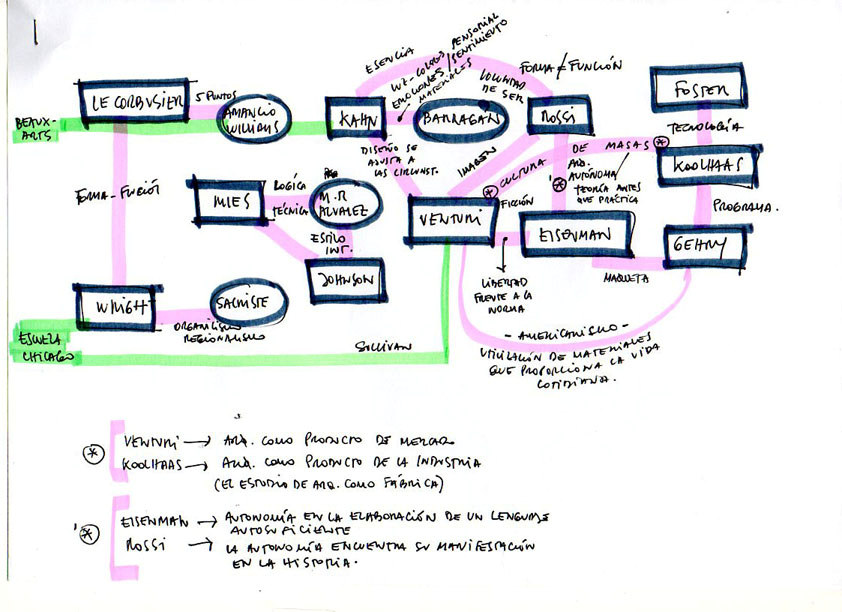 1
LE CORBUSIER
5 PUNTOS
AMANCIO
WILLIAMS
BEAUX-
ARTS
ESENCIA
KAHN
LUZ - COLORES
EMOCIONES
MATERIALES
SENSORIAL
SENTIMIENTO
BARRAGAN
VOLUNTAD
DE SER
FORMA ≠ FUNCIÓN
ROSSI
FOSTER
TECNOLOGÍA
KOOLHAAS
PROGRAMA.
GEHRY
FORMA-FUNCIÓN
MIES
LOGICA
TÉCNICA
M.R
ALVAREZ
ESTILO
INT.
JOHNSON
DISEÑO SE
AJUSTA A
LAS CIRCUNST.
IMAGEN
VENTURI
* CULTURA
DE MASAS *
FICCIÓN
'* ARQ.
AUTÓNOMA
TEORÍA ANTES
QUE PRÁCTICA
EISENMAN
MAQUETA
LIBERTAD
FRENTE A LA
NORMA
WRIGHT
SACRISTE
ORGANICISMO
REGIONALISMO
ESCUELA
CHICAGO
SULLIVAN
- AMERICANISMO -
UTILIZACIÓN DE MATERIALES
QUE PROPORCIONA LA VIDA
COTIDIANA.
* VENTURI → ARQ. COMO PRODUCTO DE MERCADO
KOOLHAAS → ARQ. COMO PRODUCTO DE LA INDUSTRIA
(EL ESTUDIO DE ARQ. COMO FÁBRICA)
'* EISENMAN → AUTONOMÍA EN LA ELABORACIÓN DE UN LENGUAJE
AUTOSUFICIENTE
ROSSI → LA AUTONOMÍA ENCUENTRA SU MANIFESTACIÓN
EN LA HISTORIA.